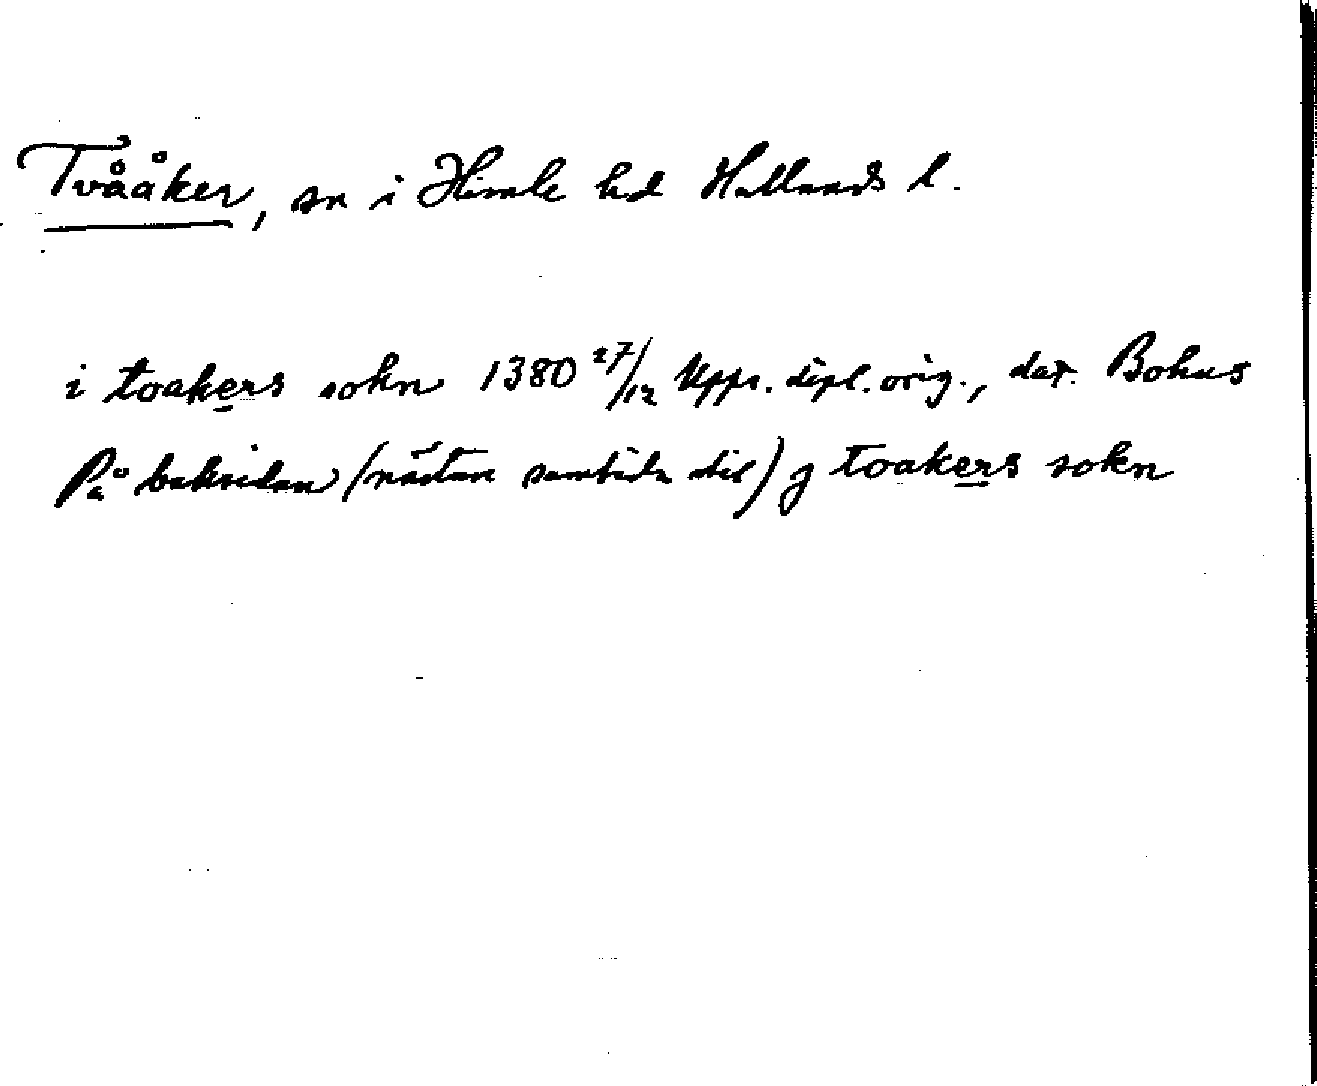 Tvååker, sn i Himle hd Hallands l.
i toakers sokn 1380 27/12 Upps. dipl. orig., dat. Bohus
På baksidan (nästan samtida stil) j toakers sokn